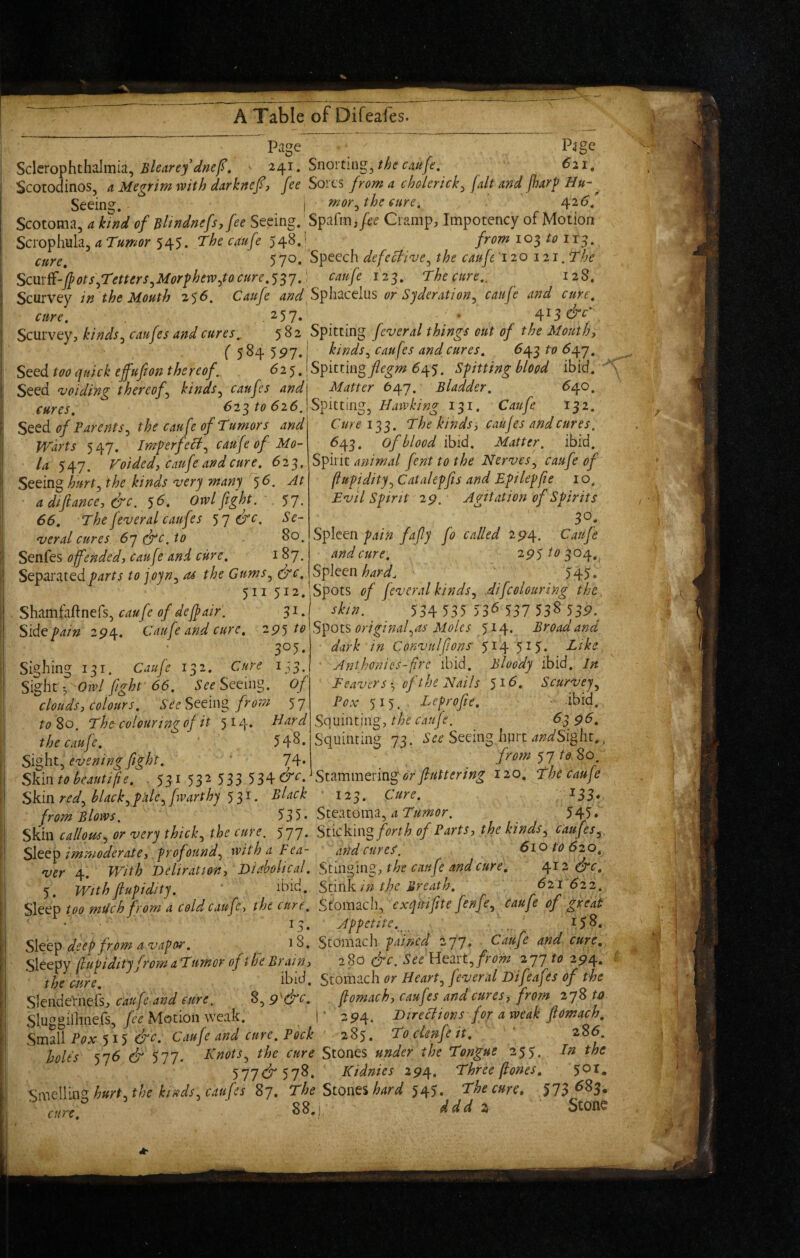 A Table of Diſeaſes.
Page
Sclerophthalmia, Blearey'dneſs. 241.
Scotodinos, a Megrim with darkneſs, ſee
Seeing.
Scotoma, a kind of Blindneſs, ſee Seeing.
Scrophula, a Tumor 545. The cauſe 548.
cure. 570.
Scurff-ſpots,Tetters,Morphew,to cure.537.
Scurvey in the Mouth 256. Cauſe and
cure. 257.
Scurvey, kinds, cauſes and cures. 582
( 584 597.
Seed too quick effuſion thereof. 625.
Seed voiding thereof, kinds, cauſes and
cures. 623 to 626.
Seed of Parents, the cauſe of Tumors and
Warts 547. Imperfect, cauſe of Mo-
la 547. Voided, cauſe and cure. 623.
Seeing hurt, the kinds very many 56. At
a diſtance, &c. 56. Owl ſight. 57.
66. The ſeveral cauſes 57 &c. Se-
veral cures 67 &c. to 80.
Senſes offended, cauſe and cure. 187.
Separated parts to joyn, as the Gums, &c.
511 512.
Shamfaſtneſs, cauſe of deſpair. 31.
Side pain 294. Cauſe and cure. 295 to
305.
Sighing 131. Cauſe 132. Cure 133.
Sight; Owl ſight 66. See Seeing. Of
clouds, colours. See Seeing from 57
to 80. The colouring of it 514. Hard
the cauſe. 548.
Sight, evening ſight. 74.
Skin to beautifie. 531 532 533 534 &c.
Skin red, black, pale, ſwarthy 531. Black
from Blows. 535.
Skin callous, or very thick, the cure. 577.
Sleep immoderate, profound, with a Fea-
ver 4. With Deliration, Diabolical.
5. With ſtupidity. ibid.
Sleep too much from a cold cauſe, the cure.
13.
Sleep deep from a vapor. 18.
Sleepy ſtupidity from a Tumor of the Brain,
the cure. ibid.
Slenderneſs, cauſe and cure. 8, 9 &c.
Sluggiſhneſs, ſee Motion weak.
Small Pox 515 &c. Cauſe and cure. Pock
holes 576 & 577. Knots, the cure
577 & 578.
Smelling hurt, the kinds, cauſes 87. The
cure. 88.
Page
Snorting, the cauſe. 621.
Sores from a cholerick, ſalt and ſharp Hu-
mor, the cure. 426.
Spaſm, ſee Cramp, Impotency of Motion
from 103 to 113.
Speech defective, the cauſe 120 121. The
cauſe 123. The cure. 128.
Sphacelus or Syderation, cauſe and cure.
413 &c
Spitting ſeveral things out of the Mouth,
kinds, cauſes and cures. 643 to 647.
Spitting flegm 645. Spitting blood ibid.
Matter 647. Bladder. 640.
Spitting, Hawking 131. Cauſe 132.
Cure 133. The kinds, cauſes and cures.
643. Of blood ibid. Matter. ibid.
Spirit animal ſent to the Nerves, cauſe of
ſtupidity, Catalepſis and Epilepſie 10.
Evil Spirit 29. Agitation of Spirits
30.
Spleen pain falſly ſo called 294. Cauſe
and cure. 295 to 304.
Spleen hard. 545.
Spots of ſeveral kinds, diſcolouring the
skin. 534 535 536 537 538 539.
Spots original, as Moles 514. Broad and
dark in Convulſions 514 515. Like
Anthonies-fire ibid. Bloody ibid. In
Feavers; of the Nails 516. Scurvey,
Pox 515. Leproſie. ibid.
Squinting, the cauſe. 63 96.
Squinting 73. See Seeing hurt and Sight.
from 57 to 80.
Stammering or ſtuttering 120. The cauſe
123. Cure. 133.
Steatoma, a Tumor. 545.
Sticking forth of Parts, the kinds, cauſes,
and cures. 610 to 620.
Stinging, the cauſe and cure. 412 &c.
Stink in the Breath. 621 622.
Stomach, exquiſite ſenſe, cauſe of great
Appetite. 158.
Stomach pained 277. Cauſe and cure.
280 &c. See Heart, from 277 to 294.
Stomach or Heart, ſeveral Diſeaſes of the
ſtomach, cauſes and cures, from 278 to
294. Directions for a weak ſtomach.
285. To clenſe it. 286.
Stones under the Tongue 255. In the
Kidnies 294. Three ſtones. 501.
Stones hard 545. The cure. 573 683.
ddd 2 Stone